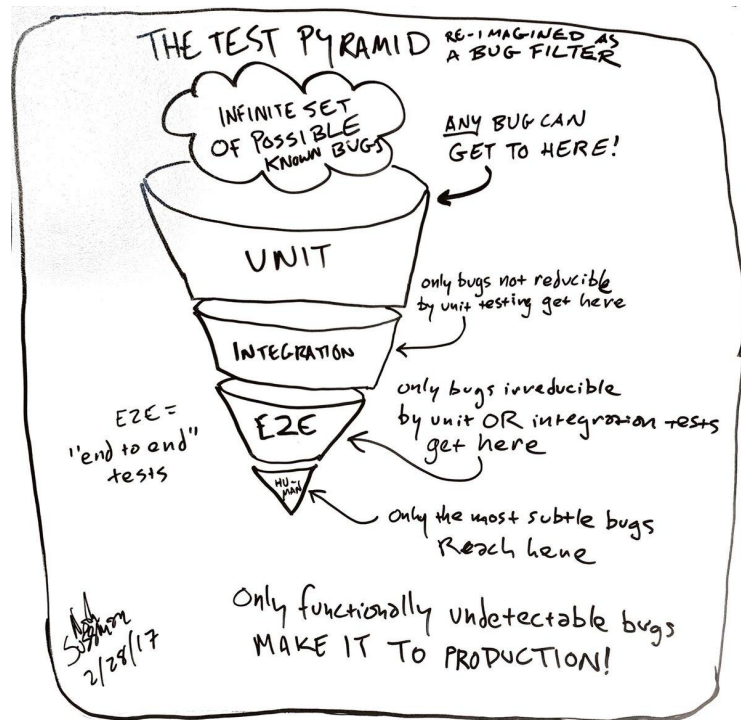 THE TEST PYRAMID
RE-IMAGINED AS
A BUG FILTER
INFINITE SET
OF POSSIBLE
KNOWN BUGS
ANY BUG CAN
GET TO HERE!
UNIT
only bugs not reducible
by unit testing get here
INTEGRATION
only bugs irreducible
by unit OR integration tests
get here
E2E =
"end to end"
tests
E2E
HU-
MAN
only the most subtle bugs
Reach here
Only functionally undetectable bugs
MAKE IT TO PRODUCTION!
Noah
Sussman
2/28/17